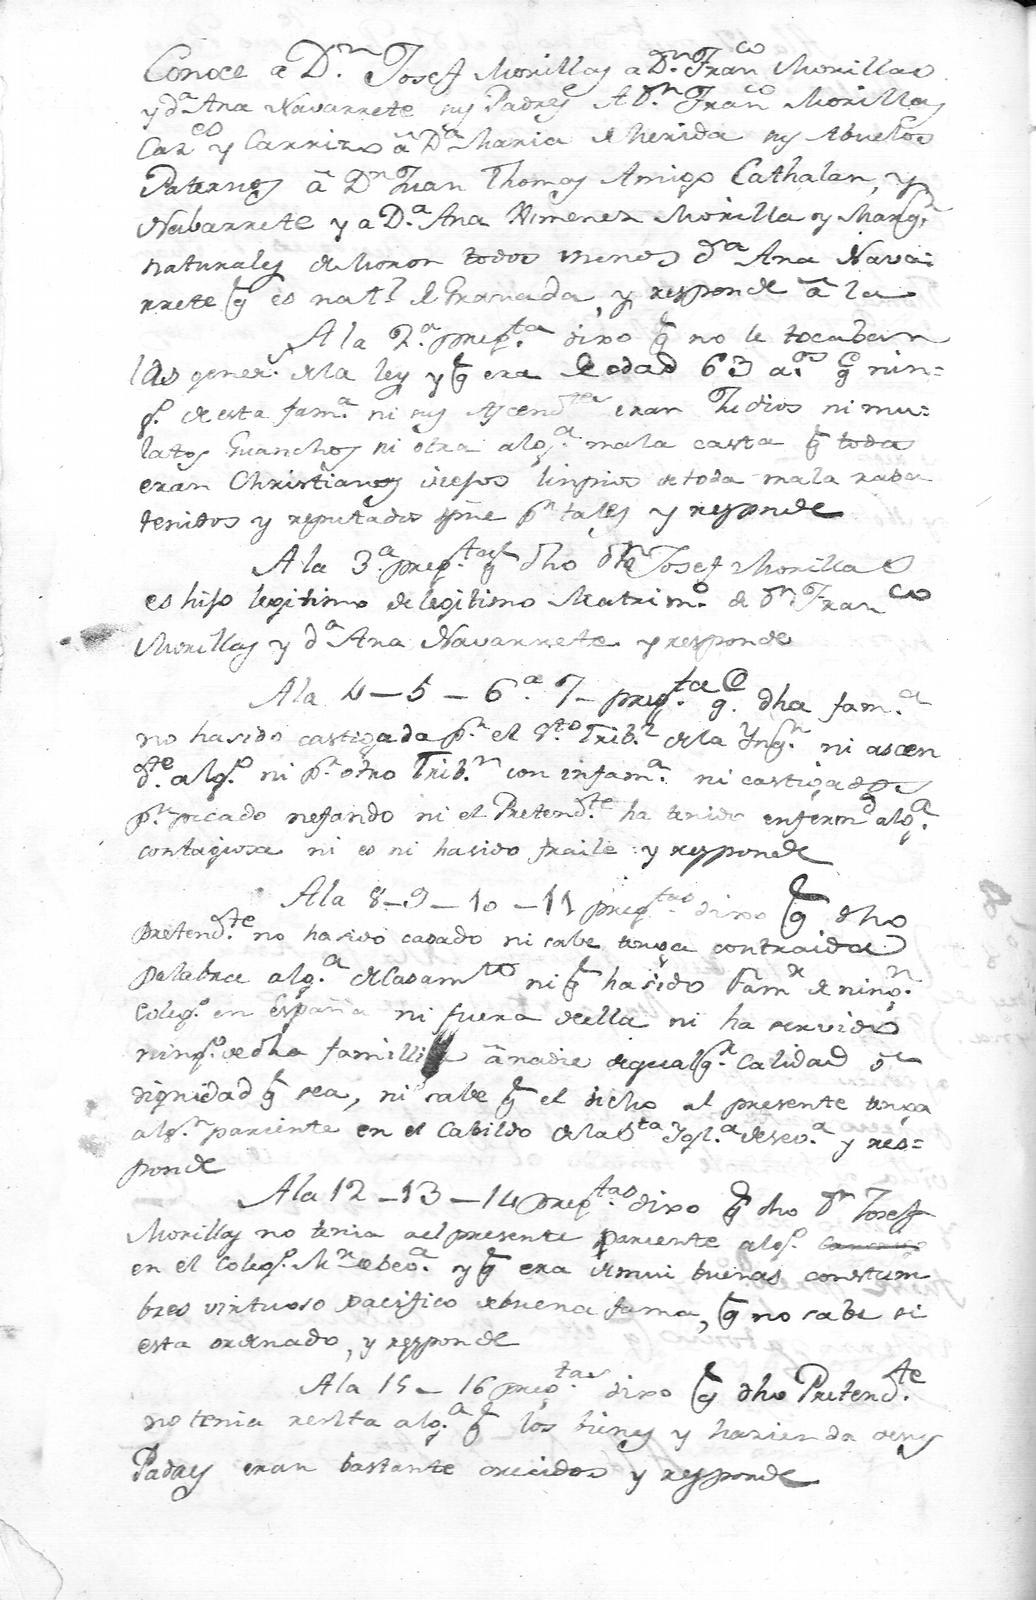 Conoce a Dn. Josef Morillas a Dn. Franco Morillas
y da. Ana Navarrete sus Padres A Dn. Franco Morillas
Carco y Carrizo â Da. Maria de Merida sus Abuelos
Paternos â Dn Juan Thomas Amigo Cathalan, y
Nabarrete y a Da. Ana Ximenez Morilla y Marqz
naturales de Moron todos menos da Ana Navar
rrete q es natl. de Granada, y responde â la
A la 2.a pregta. dixo q no le tocaban
las gener.s de la ley y q era de edad 63 a.os q nin=
go. de esta fama. ni sus Ascendtes eran Judios ni mu=
latos Guanchos ni otra alga. mala casta q todos
eran Christianos viejos limpios de toda mala raza
tenidos y reputados spre pr tales y responde
A la 3.a pregtas q dho dn Josef Morillas
es hijo legitimo de legitimo Matrimo. de dn Franco
Morillas y da Ana Navarrete y responde
A la 4 – 5 – 6a 7 – pregta q. dha fam.a
no ha sido castigada pr. el Sto Tribl de la Ynqn. ni ascen
dte. algo. ni pr. otro Tribl con infama. ni castigados
pr. pecado nefando ni el Pretendte. ha tenido enfermd alga.
contagiosa ni es ni ha sido fraile y responde
A la 8 – 9 – 10 – 11 pregtas dixo q dho
pretendte. no ha sido casado ni sabe tenga contraida
palabra alga. de Casamto ni q ha sido Famr de ningn.
Colego. en España ni fuera de ella ni ha servido
ningo. de dha familia â nadie de qualqa. Calidad ô
dignidad q sea, ni sabe q el dicho al presente tenga
algn. pariente en el Cabildo de la Sta Ygla. de Seva. y res=
ponde
A la 12 – 13 – 14 pregtas dixo q dho dn Josef
Morillas no tenia al presente pariente algo.
en el Colego. Mr de Seva. y q era de mui buenas constum
bres virtuoso pacifico de buena fama, q no sabe si
esta ordenado, y responde
A la 15 – 16 pregtas dixo q dho Pretendte.
no tenia renta alga. q los bienes y hazienda de sus
Padres eran bastante crecidos y responde